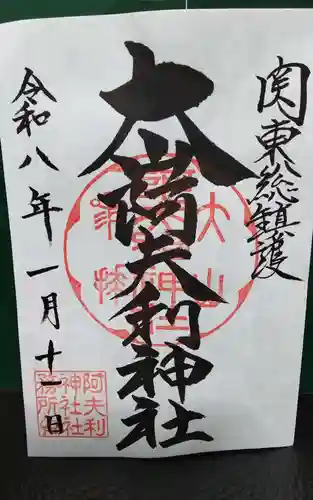 関東総鎮護
大山阿夫利神社
令和八年一月十一日
阿夫利
神社社
務所印